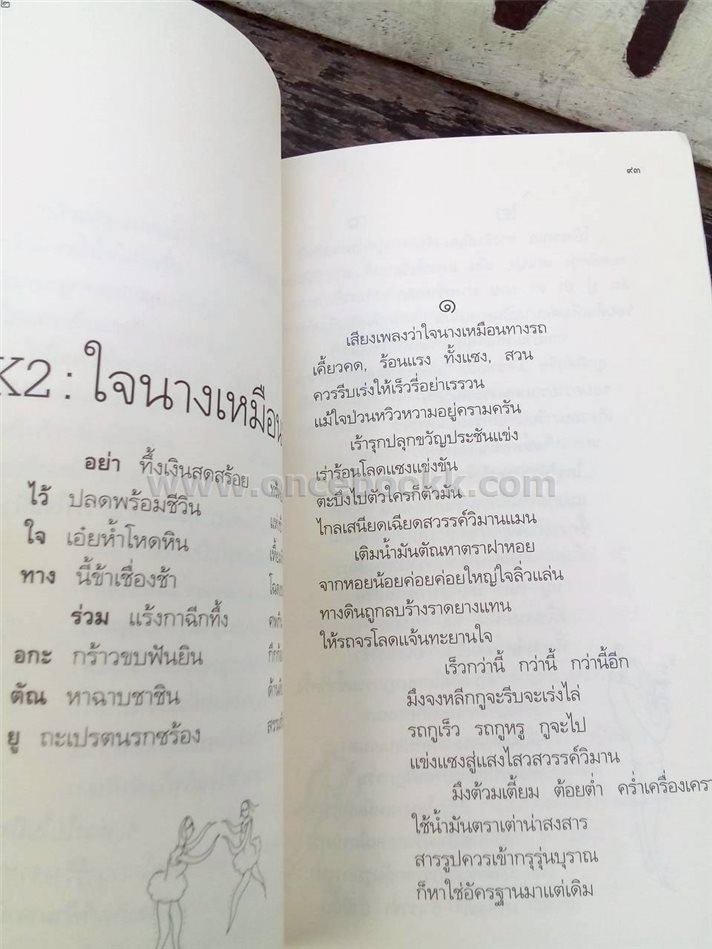 ๒
K2 : ใจนางเหมือน
อย่า ทึ้งเงินสดสร้อย
ไว้ ปลดพร้อมชีวิน
ใจ เอ๋ยห้ำโหดหิน
ทาง นี้ข้าเชื่องช้า
ร่วม แร้งกาฉีกทึ้ง
อกะ กร้าวขบฟันยิน
ตัณ หาฉาบชาชิน
ยู ถะเปรตนรกซร้อง
๙๓
๑
เสียงเพลงว่าใจนางเหมือนทางรถ
เคี้ยวคด, ร้อนแรง ทั้งแซง, สวน
ควรรีบเร่งให้เร็วรี่อย่าเรรวน
แม้ใจป่วนหวิวหวามอยู่ครามครัน
เร้ารุกปลุกขวัญประชันแข่ง
เร่าร้อนโลดแซงแข่งขัน
ตะบึงไปตัวใครก็ตัวมัน
ไกลเสนียดเฉียดสวรรค์วิมานแมน
เติมน้ำมันตัณหาตราฝาหอย
จากหอยน้อยค่อยค่อยใหญ่ใจลิ่วแล่น
ทางดินถูกลบร้างราดยางแทน
ให้รถจรโลดแจ้นทะยานใจ
เร็วกว่านี้ กว่านี้ กว่านี้อีก
มึงจงหลีกกูจะรีบจะเร่งไล่
รถกูเร็ว รถกูหรู กูจะไป
แข่งแซงสู่แสงไสวสวรรค์วิมาน
มึงต้วมเตี้ยม ต้อยต่ำ คร่ำเครื่องเครา
ใช้น้ำมันตราเต่าน่าสงสาร
สารรูปควรเข้ากรุรุ่นบุราณ
ก็หาใช่อัครฐานมาแต่เดิม
www.oncebookk.com